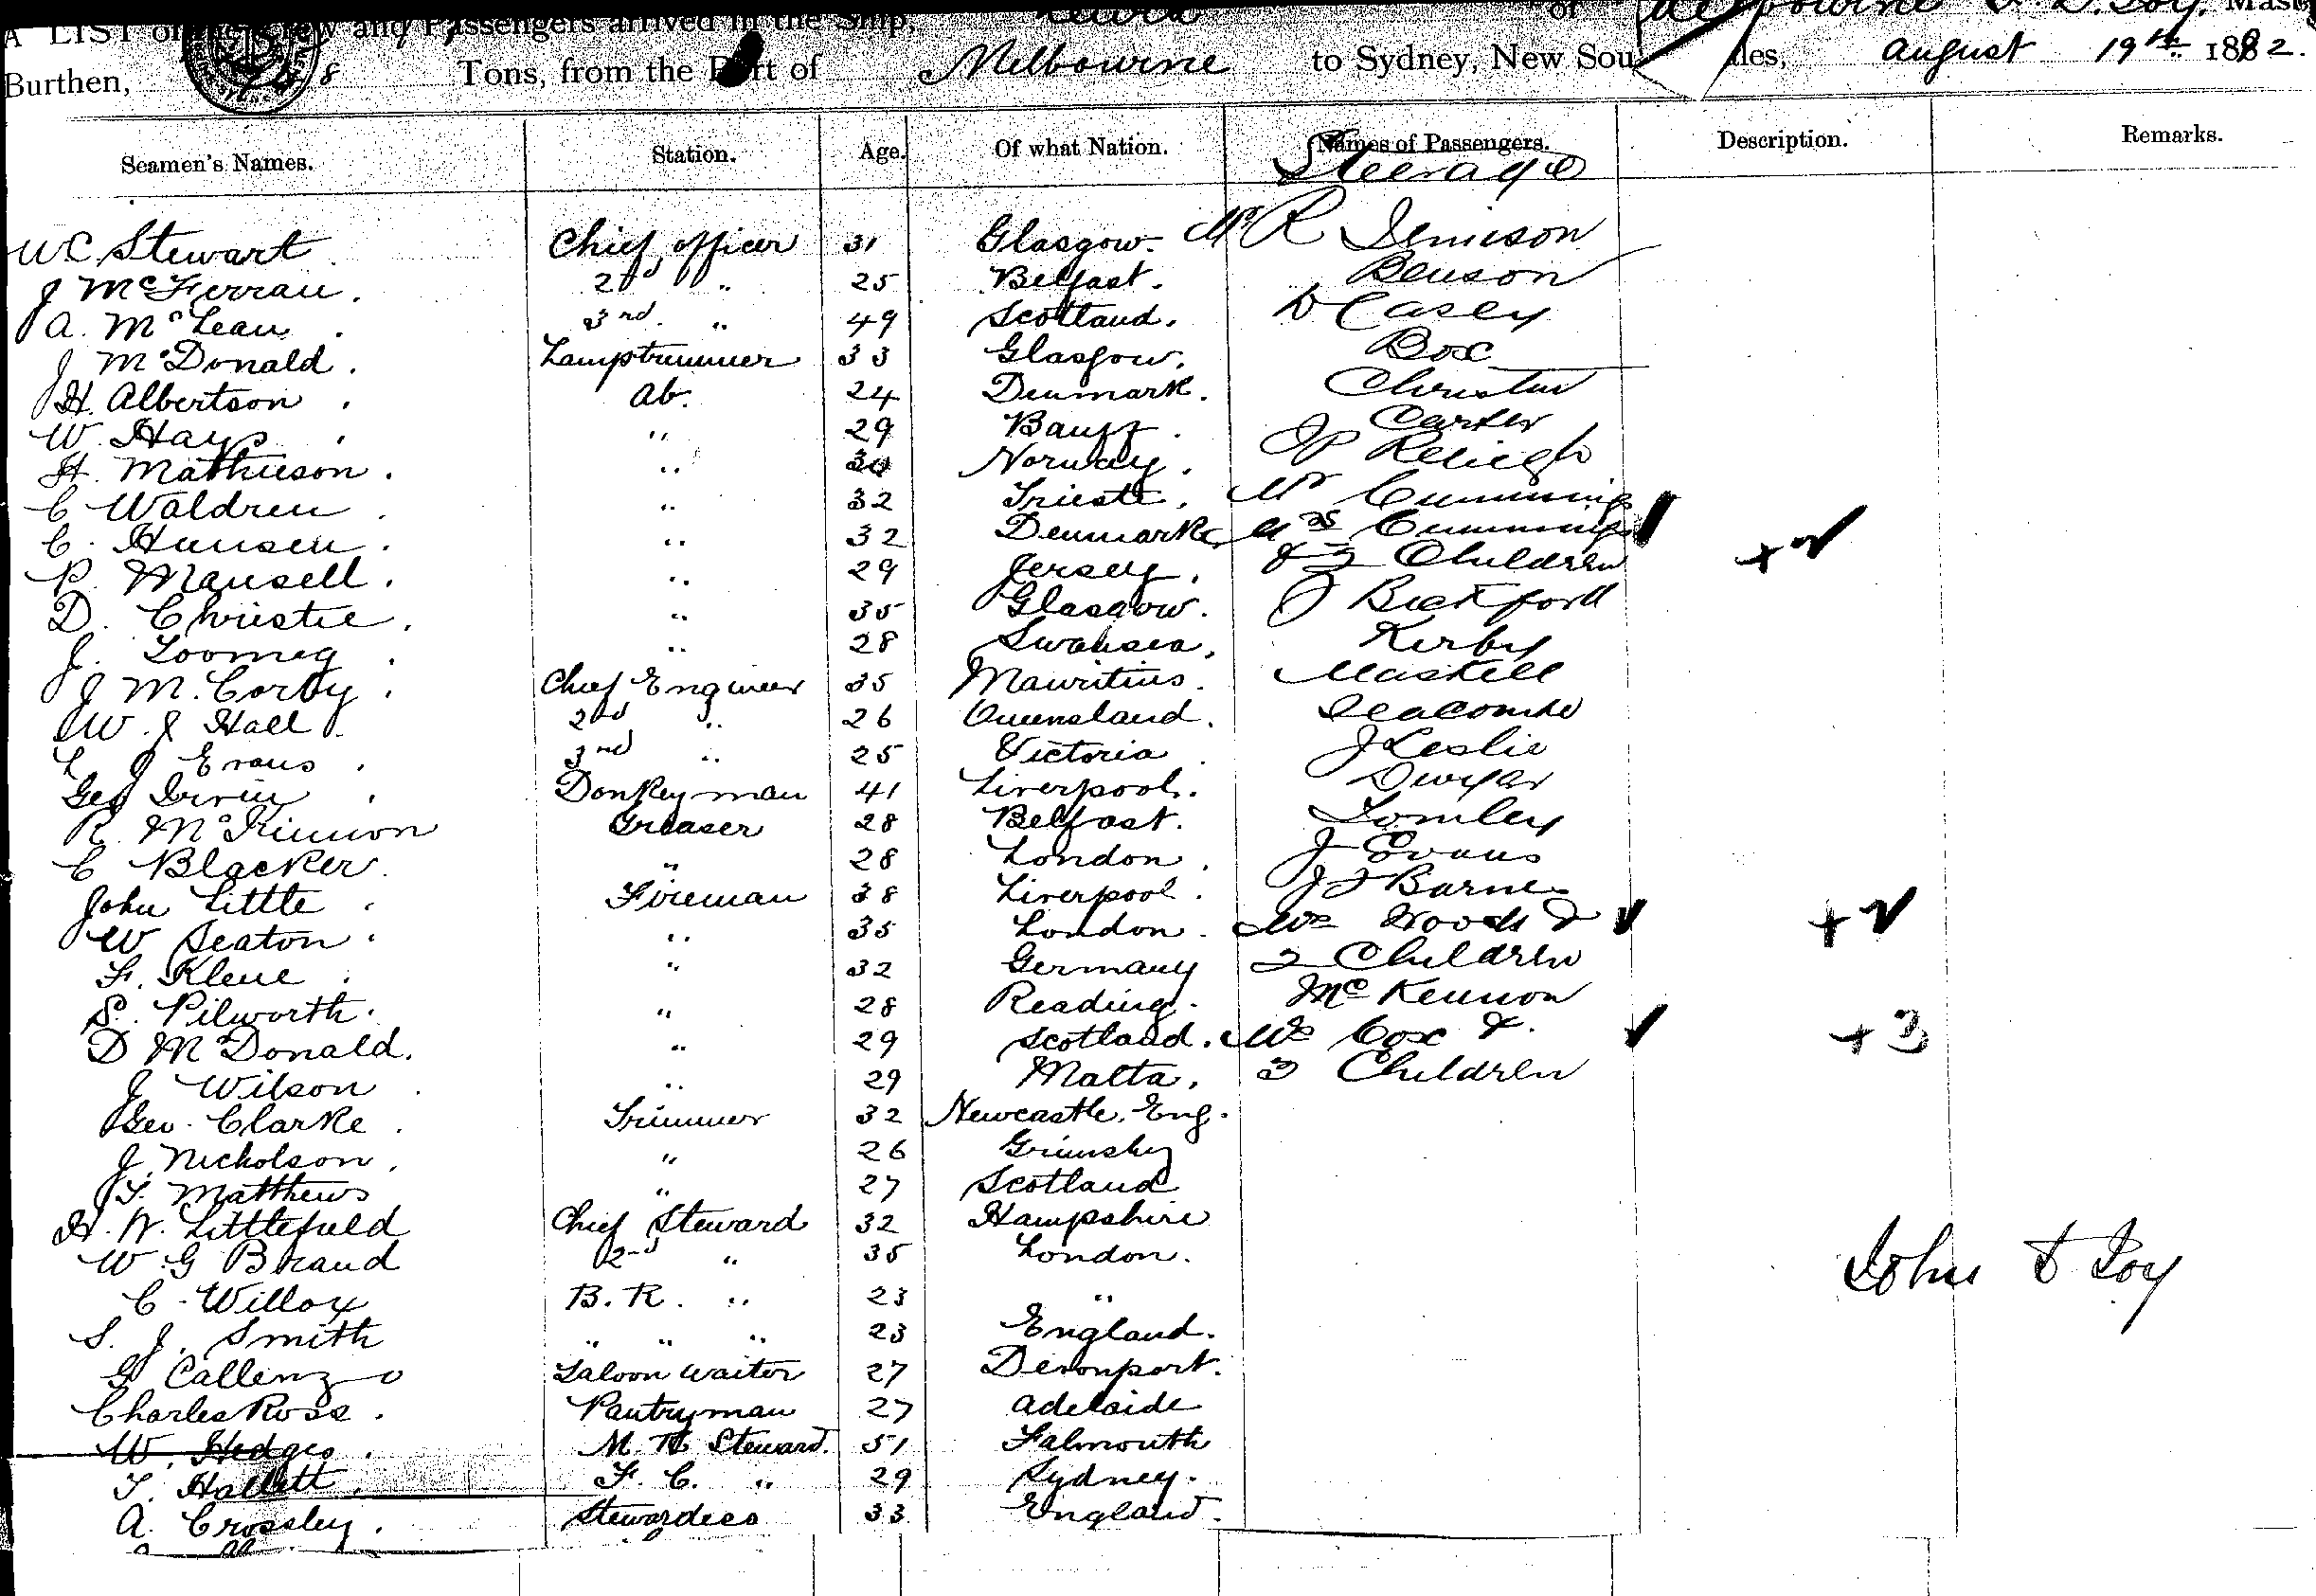 A LIST of Crew and Passengers arrived in the Ship, of Melbourne J. D. Toy, Mast
Burthen, Tons, from the Port of Melbourne to Sydney, New Sou les, August 19th 1882.
Seamen's Names. Station. Age. Of what Nation. Names of Passengers. Description. Remarks.
Steerage
W C Stewart Chief officer 31 Glasgow. Mr R Jemison
J McFerran. 2nd " 25 Belfast. Benson
A. McLean. 3rd. " 49 Scotland. D Casey
J McDonald. Lamptrimmer 33 Glasgow. Box
H. Albertson. Ab. 24 Denmark. Christie
W. Hays. " 29 Banff. Carter
H. Mathieson. " Norway. J P
C Waldren. " 32 Trieste. Mr Cummings
C. Hansen. " 32 Denmark. Mrs Cummings
P. Mansell. " 29 Jersey. & 2 Children +2
D. Christie. " 35 Glasgow. J Bickford
J. Loomeg. " 28 Swansea. Kerby
J M. Corby. Chief Engineer 35 Mauritius. Maskell
W. J Hall. 2nd " 26 Queensland. Seacombe
L J Evans. 3rd " 25 Victoria. J Leslie
Geo Irwin. Donkeyman 41 Liverpool. Dwyar
R. McKinnon Greaser 28 Belfast. Lomley
C Blacker. " 28 London. J Evans
John Little. Fireman 38 Liverpool. J J Barnes
W Seaton. " 35 London. Mrs Woods & +2
F. Klene. " 32 Germany 2 Children
S. Pilworth. " 28 Reading. McKennon
D McDonald. " 29 Scotland. Mrs Cox &. +3
J Wilson. " 29 Malta. 3 Children
Geo. Clarke. Trimmer 32 Newcastle. Eng.
J. Nicholson. " 26 Grimsby
T. Matthews " 27 Scotland
H. W. Littlefield Chief Steward 32 Hampshire
W. G Brand 2nd " 35 London.
John D Toy
C. Willox B. R. " 23 "
S. J. Smith " " " 23 England.
G Callenzo Saloon waiter 27 Devonport.
Charles Ross. Pantryman 27 Adelaide
W. Hedges. M. R Steward. 51 Falmouth
T. Hallett. F. C. " 29 Sydney.
A. Crossley. Stewardess 33 England.